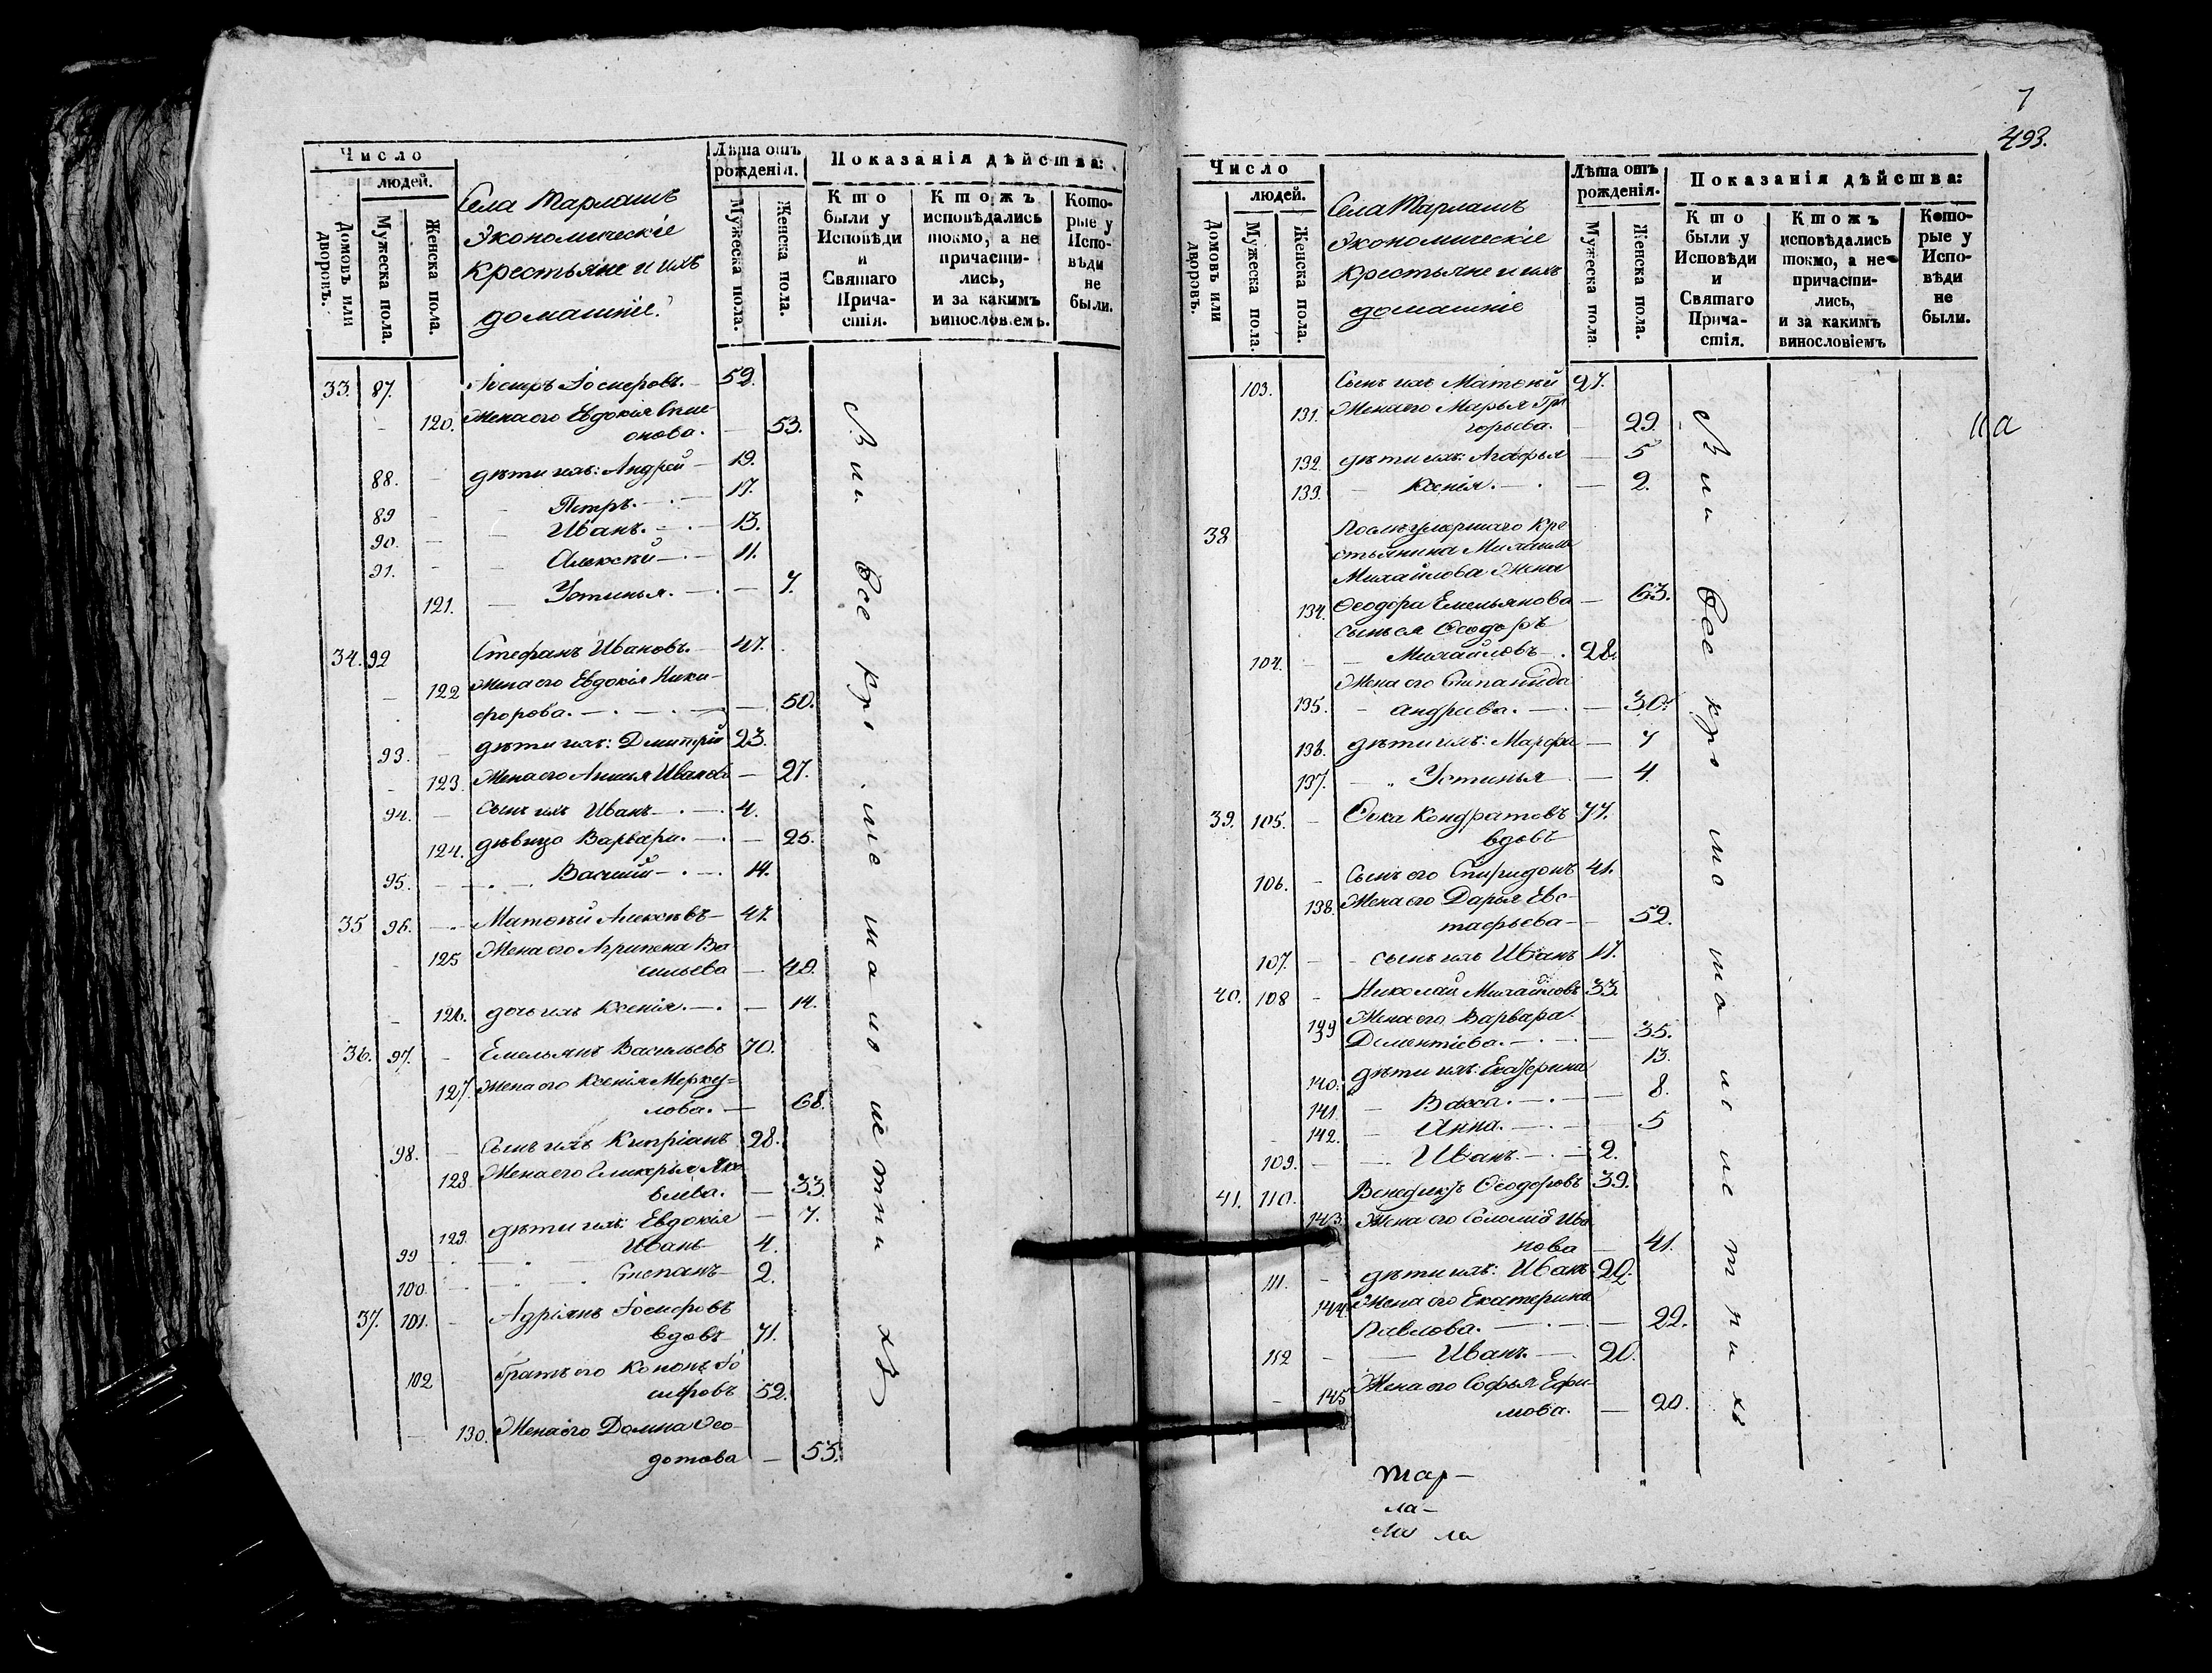 Число
людей.
Домовъ или дворовъ.
Мужеска пола.
Женска пола.
Села Тарлашъ
Экономическіе
крестьяне и ихъ
домашніе.
Лѣта отъ
рожденія.
Мужеска пола.
Женска пола.
Показанія дѣйства:
Кто
были у
Исповѣди
и
Святаго
Прича-
стія.
Ктожъ
исповѣдались
токмо, а не
причасти-
лись,
и за какимъ
винословіемъ.
Кото-
рые у
Испо-
вѣди
не
были.
33. 87. Петръ Іосифовъ. 52.
120. Жена его Евдокія Симе-
онова. — 53.
88. дѣти ихъ: Андрей — 19.
89 — Петръ. — 17.
90. — Иванъ. — 13.
91. — Алексѣй — 11.
121. — Устинья. — 7.
34. 92 Стефанъ Ивановъ. 47.
122 Жена его Евдокія Ники-
форова. — 50.
93. дѣти ихъ: Димитрій 23.
123. Жена его Анисья Иванова — 27.
94. сынъ ихъ Иванъ — 4.
124. дѣвица Варвара. — 25.
95. — Василій — 14.
35 96. Матѳѣй Алексѣевъ — 47.
125 Жена его Агрипена Ва-
сильева — 49.
126. дочь ихъ Ксенія. — 14.
36. 97. Емельянъ Васильевъ 70.
127. Жена его Ксенія Мерку-
лова. — 68.
98. Сынъ ихъ Кипріанъ 28.
128 Жена его Гликерья Яко-
влева. — 33.
129. дѣти ихъ: Евдокія — 7.
99 Иванъ 4.
100. Степанъ 2.
37. 101. Адріянъ Іосифовъ
вдовъ 71.
102 братъ его Кононъ Іо
сифовъ 52.
130. Жена его Домна Ѳео-
дотова — 53.
Сіи все кро ме ма ло лет ни хъ
7
493.
Число
людей.
Домовъ или дворовъ.
Мужеска пола.
Женска пола.
Села Тарлашъ
Экономическіе
крестьяне и ихъ
домашніе
Лѣта отъ
рожденія.
Мужеска пола
Женска пола.
Показанія дѣйства:
Кто
были у
Исповѣди
и
Святаго
Прича-
стія.
Ктожъ
исповѣдались
токмо, а не
причасти-
лись,
и за какимъ
винословіемъ
Кото-
рые у
Испо-
вѣди
не
были.
103. Сынъ ихъ Матѳѣй 27.
131. Жена его Марья Гри
горьева. — 29.
132. дѣти ихъ: Агафья — 5
133. — Ксенія. — 2.
38 Послѣ умершаго Кре
стьянина Михаила
Михайлова Жена
134. Ѳеодора Емельянова — 63.
сынъ ея Ѳеодоръ
104. — Михайловъ — 28.
Жена его Степанида
135. — Андреева. — 30.
136. дѣти ихъ: Марфа — 7
137. — Устинья — 4.
39. 105. — Лука Кондратовъ 77.
вдовъ
106. — Сынъ его Спиридонъ 41.
138. Жена его Дарья Евс-
тафьева — 52.
107. — сынъ ихъ Иванъ 17.
40. 108 — Николай Михайловъ 33.
139 Жена его Варвара
Дементіева. — 35.
140. дѣти ихъ: Екатерина 13.
141. — Васса. — 8.
142. — Анна. — 5
109. — Иванъ. — 2.
41. 110. Венедиктъ Ѳеодоровъ 39.
143. Жена его Соломія Ива
нова — 41.
111. — дѣти ихъ: Иванъ 22.
144. Жена его Екатерина
Павлова. — 22.
112 — Иванъ. — 20.
145 Жена его Софья Ефи-
мова. — 20.
Сіи все кро ме ма ло ле т ни хъ
Тар-
ла-
ла